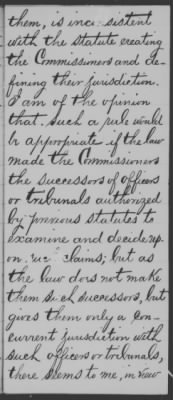 them, is inconsistent
with the statute creating
the Commissioners and de-
fining their jurisdiction.
I am of the opinion
that such a rule would
be appropriate if the law
made the Commissioners
the successors of officers
or tribunals authorized
by previous statutes to
examine and decide up-
on claims; but as
the law does not make
them such successors, but
gives them only a con-
current jurisdiction with
such officers or tribunals,
there seems to me, in view